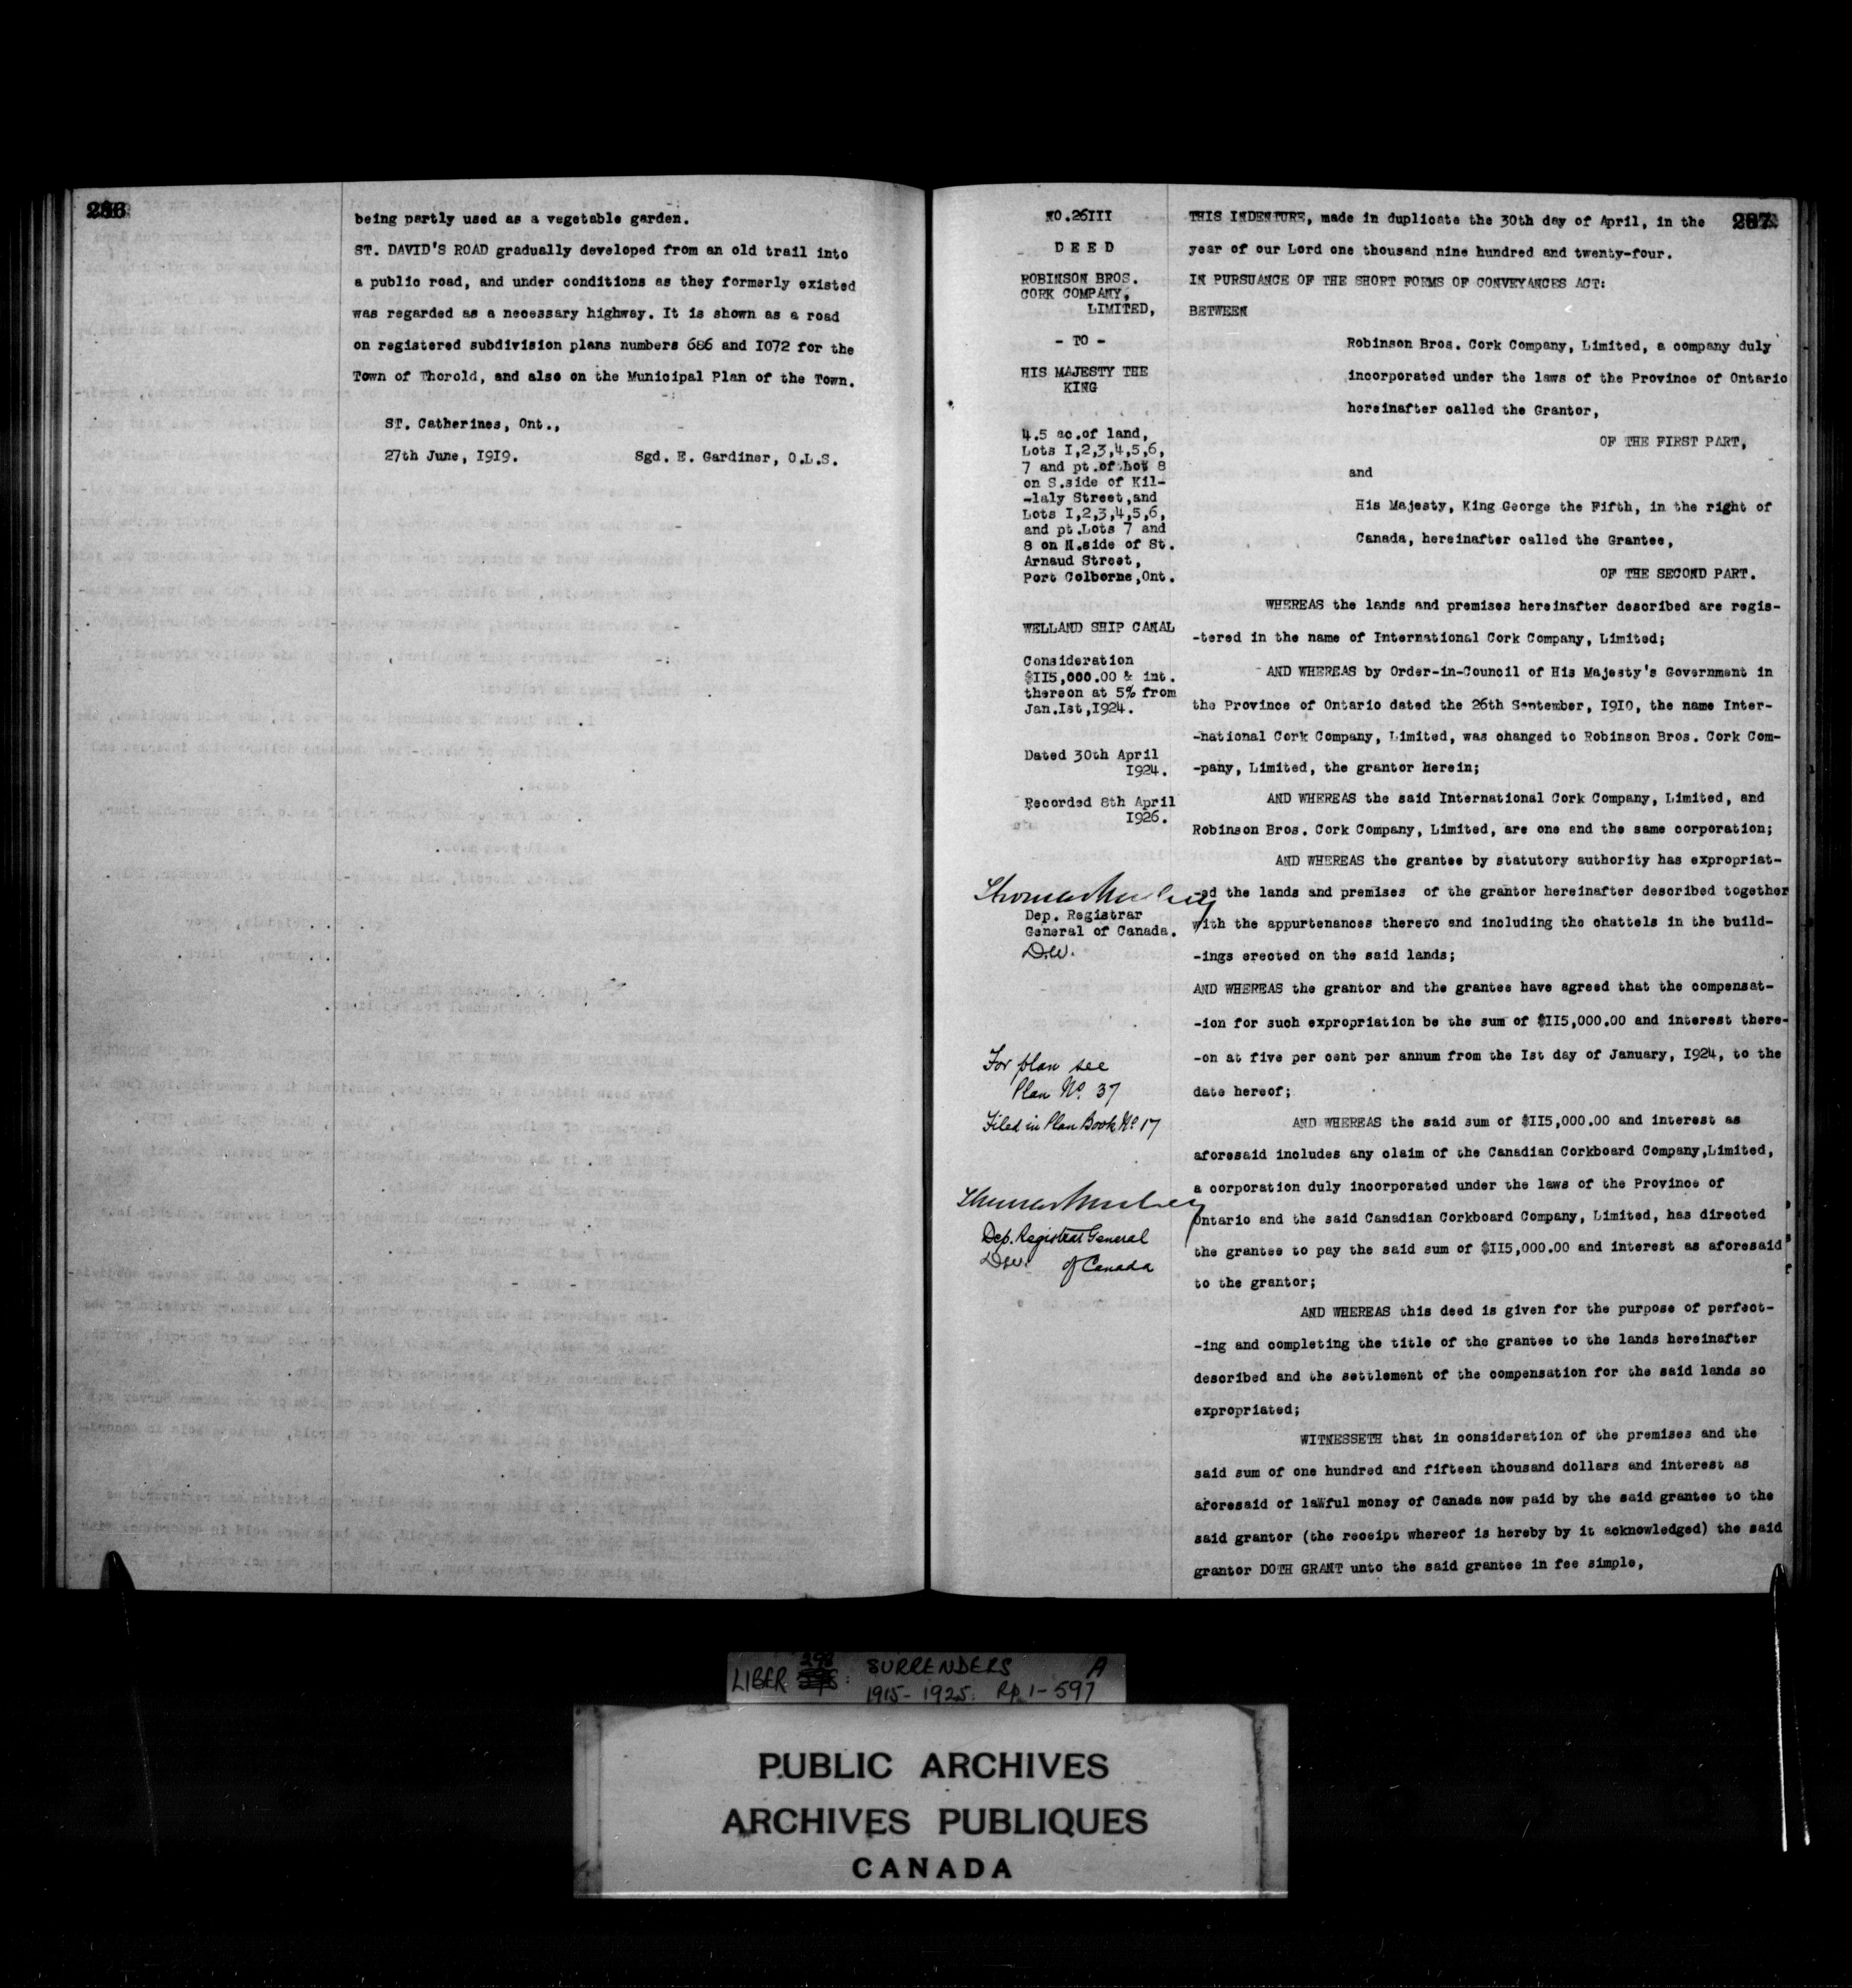 286
being partly used as a vegetable garden.
ST. DAVID'S ROAD gradually developed from an old trail into
a public road, and under conditions as they formerly existed
was regarded as a necessary highway. It is shown as a road
on registered subdivision plans numbers 686 and I072 for the
Town of Thorold, and also on the Municipal Plan of the Town.
ST. Catherines, Ont.,
27th June, I9I9. Sgd. E. Gardiner, O.L.S.
287
NO.26III
D E E D
ROBINSON BROS.
CORK COMPANY,
LIMITED,
- TO -
HIS MAJESTY THE
KING
4.5 ac.of land,
Lots I,2,3,4,5,6,
7 and pt.of hot 8
on S.side of Kil-
-laly Street,and
Lots I,2,3,4,5,6,
and pt.Lots 7 and
8 on N.side of St.
Arnaud Street,
Port Colborne,Ont.
WELLAND SHIP CANAL
Consideration
$II5,000.00 & int.
thereon at 5% from
Jan.Ist,I924.
Dated 30th April
I924.
Recorded 8th April
I926.
Thomas Mulvey
Dep. Registrar
General of Canada.
D.W.
For plan see
Plan No. 37
Filed in Plan Book No 17
Thomas Mulvey
Dep. Registrar General
of Canada
THIS INDENTURE, made in duplicate the 30th day of April, in the
year of our Lord one thousand nine hundred and twenty-four.
IN PURSUANCE OF THE SHORT FORMS OF CONVEYANCES ACT:
BETWEEN
Robinson Bros. Cork Company, Limited, a company duly
incorporated under the laws of the Province of Ontario
hereinafter called the Grantor,
OF THE FIRST PART,
and
His Majesty, King George the Fifth, in the right of
Canada, hereinafter called the Grantee,
OF THE SECOND PART.
WHEREAS the lands and premises hereinafter described are regis-
-tered in the name of International Cork Company, Limited;
AND WHEREAS by Order-in-Council of His Majesty's Government in
the Province of Ontario dated the 26th September, I9I0, the name Inter-
-national Cork Company, Limited, was changed to Robinson Bros. Cork Com-
-pany, Limited, the grantor herein;
AND WHEREAS the said International Cork Company, Limited, and
Robinson Bros. Cork Company, Limited, are one and the same corporation;
AND WHEREAS the grantee by statutory authority has expropriat-
-ed the lands and premises of the grantor hereinafter described together
with the appurtenances thereto and including the chattels in the build-
-ings erected on the said lands;
AND WHEREAS the grantor and the grantee have agreed that the compensat-
-ion for such expropriation be the sum of $II5,000.00 and interest there-
-on at five per cent per annum from the Ist day of January, I924, to the
date hereof;
AND WHEREAS the said sum of $II5,000.00 and interest as
aforesaid includes any claim of the Canadian Corkboard Company,Limited,
a corporation duly incorporated under the laws of the Province of
Ontario and the said Canadian Corkboard Company, Limited, has directed
the grantee to pay the said sum of $II5,000.00 and interest as aforesaid
to the grantor;
AND WHEREAS this deed is given for the purpose of perfect-
-ing and completing the title of the grantee to the lands hereinafter
described and the settlement of the compensation for the said lands so
expropriated;
WITNESSETH that in consideration of the premises and the
said sum of one hundred and fifteen thousand dollars and interest as
aforesaid of lawful money of Canada now paid by the said grantee to the
said grantor (the receipt whereof is hereby by it acknowledged) the said
grantor DOTH GRANT unto the said grantee in fee simple,
LIBER 298 : SURRENDERS A
1915-1925. Pp 1-597
PUBLIC ARCHIVES
ARCHIVES PUBLIQUES
CANADA